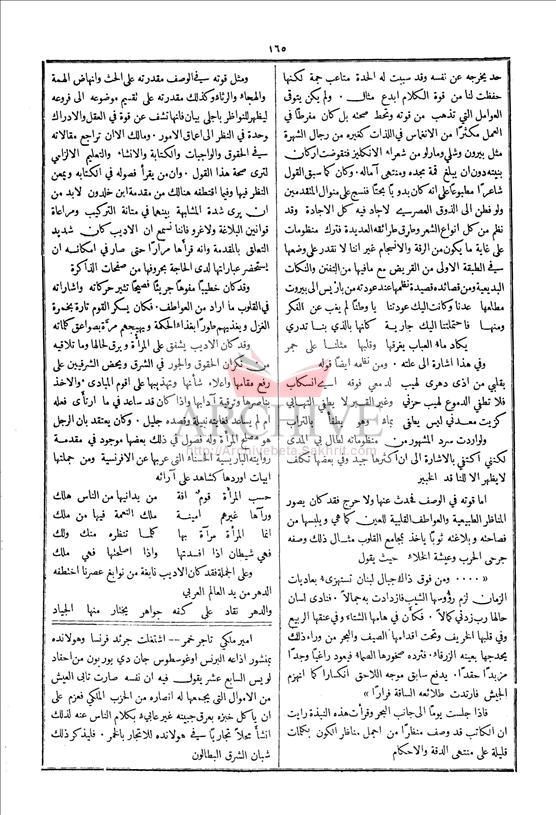 ١٦٥
حد يخرجه عن نفسه وقد سببت له الحدة متاعب جمة لكنها
حفظت لنا من قوة الكلام ابدع مثال . ولم يكن يتوقى
العوامل التي تذهب من قوته وتحط صحته بل كان مفرطاً في
العمل مكثراً من الانغماس في اللذات كغيره من رجال الشهرة
مثل بيرون وشلي ومارلو من شعراء الانكليز فتقوضت اركان
بنيته دون ان يبلغ قمة مجده ومنتهى آماله . وكان كما سبق القول
شاعراً مطبوعاً على انه كان بدوياً بحتاً فنسج على منوال المتقدمين
ولو فطن الى الذوق العصري لاجاد فيه كل الاجادة وقد
نظم من كل انواع الشعر وطرق طرائقه العديدة فترك منظومات
على غاية ما يكون من الرقة والانسجام غير اننا لا نقدر على وضعها
في الطبقة الاولى من القريض مع مافيها من التفنن والنكات
البديعية ومن قصائده قصيدة نظمها عند عودته من باريس الى بيروت
مطلعها عدنا وكانت اليك عودتنا يا وطناً لم يغب عن الفكر
ومنها فاحتملتنا اليك جارية كانها بالذي بنا تدري
يكاد ماء العباب يغرقها وقلبها مثلنا على جمر
وفي هذا اشارة الى علته . ومن نظمه ايضاً قوله
بقلبي من اذى دهري لهيب لدمعي فوقه ابداً انسكاب
فلا تطفي الدموع لهيب حزني وغير القبر لا يطفي التهابي
كزيت معدني ليس يطفى بماء وهو يطفأ بالتراب
ولواردت سرد المشهور من منظوماته لطال بي المدى
لكنني اكتفي بالاشارة الى ان اكثرها جيد وفي بعضها تكلف
لايظهر الا للناقد الخبير
اما قوته في الوصف فحدث عنها ولا حرج فقد كان يصور
المناظر الطبيعية والعواطف القلبية للعين كما هي ويلبسها من
فصاحته وبلاغته ثوباً ياخذ بمجامع القلوب مثال ذلك وصفه
جرحى الحرب وعيشة الخلاء حيث يقول
« .... ومن فوق ذاك جبال لبنان تستهزىء بعاديات
الزمان لزم رؤوسها الشيب فازدادت به جمالاً . فنادى لسان
حالها رب زدني كمالاً . فكأن في هامها الشتاء وفي عنقها الربيع
وفي قلبها الخريف وتحت اقدامها الصيف والبحر من وراء ذلك
يحدجها بعينه الزرقاء . فترده صخورها الصماء فيعود راغياً وجداً
مزبداً حقداً . يدفع سابق موجه اللاحق انكساراً كما انهزم
الجيش فارتدت طلائعه الساقة فراراً »
فاذا جلست يوماً الى جانب البحر وقرأت هذه النبذة رايت
ان الكاتب قد وصف منظراً من اجمل مناظر الكون بكلمات
قليلة على منتهى الدقة والاحكام
ومثل قوته في الوصف مقدرته على الحث وانهاض الهمة
والهجاء والرثاء وكذلك مقدرته على تقسيم موضوعه الى فروعه
ليظهر للنواظر باجلى بيان فانها تشف عن قوة في العقل والادراك
وحدة في النظر الى اعماق الامور . ومالك الا ان تراجع مقالاته
في الحقوق والواجبات والكتابة والانشاء والتعليم الالزامي
لترى صحة هذا القول . وان من يقرأ فصوله في الكتابة ويمعن
النظر فيها وفيما اقتطفه هنالك من مقدمة ابن خلدون لابد من
ان يرى شدة المشابهة بينهما في متانة التركيب ومراعاة
قوانين البلاغة ولا غرو فاننا نسمع ان الاديب كان شديد
التعلق بالمقدمة وانه قرأها مراراً حتى صار في امكانه ان
يستحضر عباراتها لدى الحاجة بحروفها من صفحات الذاكرة
وقد كان خطيباً مفوهاً جريئاً فصيحاً تثير حركاته واشاراته
في القلوب ما اراد من العواطف . فكان يسكر القوم تارة بخمرة
الغزل ويغذيهم طوراً بغذاء الحكمة ويهيجهم مرة بصواعق كلماته
وقد كان الاديب يشفق على المرأة ويرق لحالها وما تلاقيه
من نكران الحقوق والجور في الشرق ويحض الشرقيين على
رفع مقامها واعلاء شأنها وتهذيبها على اقوم المبادىء والاخذ
بناصرها وترقية آدابها واذا كان قد ساعد في ما ارتأى فعله
ام لم يساعد فغايته نبيلة وقصده جليل . وكان يعتقد بان الرجل
هو مصلح المرأة وله فصول في ذلك بعضها موجود في مقدمة
روايته الباريسية الحسناء التي عربها عن الافرنسية ومن جملتها
ابيات اوردها كشاهد على آرائه
حسب المرأة قوم آفة من يدانيها من الناس هلك
ورآها غيرهم امنية ملك النعمة فيها من ملك
انما المرأة مرآة بها كلما تنظره منك ولك
فهي شيطان اذا افسدتها واذا اصلحتها فهي ملك
وعلى الجملة فقد كان الاديب نابغة من نوابغ عصرنا اختطفه
الدهر من يد العالم العربي
والدهر نقاد على كفه جواهر يختار منها الجياد
امير ملكي تاجر خمر — اشتغلت جرائد فرنسا وهولانده
بمنشور اذاعه البرنس اوغوسطوس جان دي بوربون من احفاد
لويس السابع عشر يقول فيه ان نفسه صارت تابى العيش
من الاموال التي يجمعها له انصاره من الحزب الملكي فعزم على
ان ياكل خبزه بعرق جبينه غير عابىء بكلام الناس عنه لذلك
انشأ محلاً تجارياً في هولانده للاتجار بالخمر . فليذكر ذلك
شبان الشرق البطالون
ARCHIVE
http://Archivebeta.Sakhrit.com